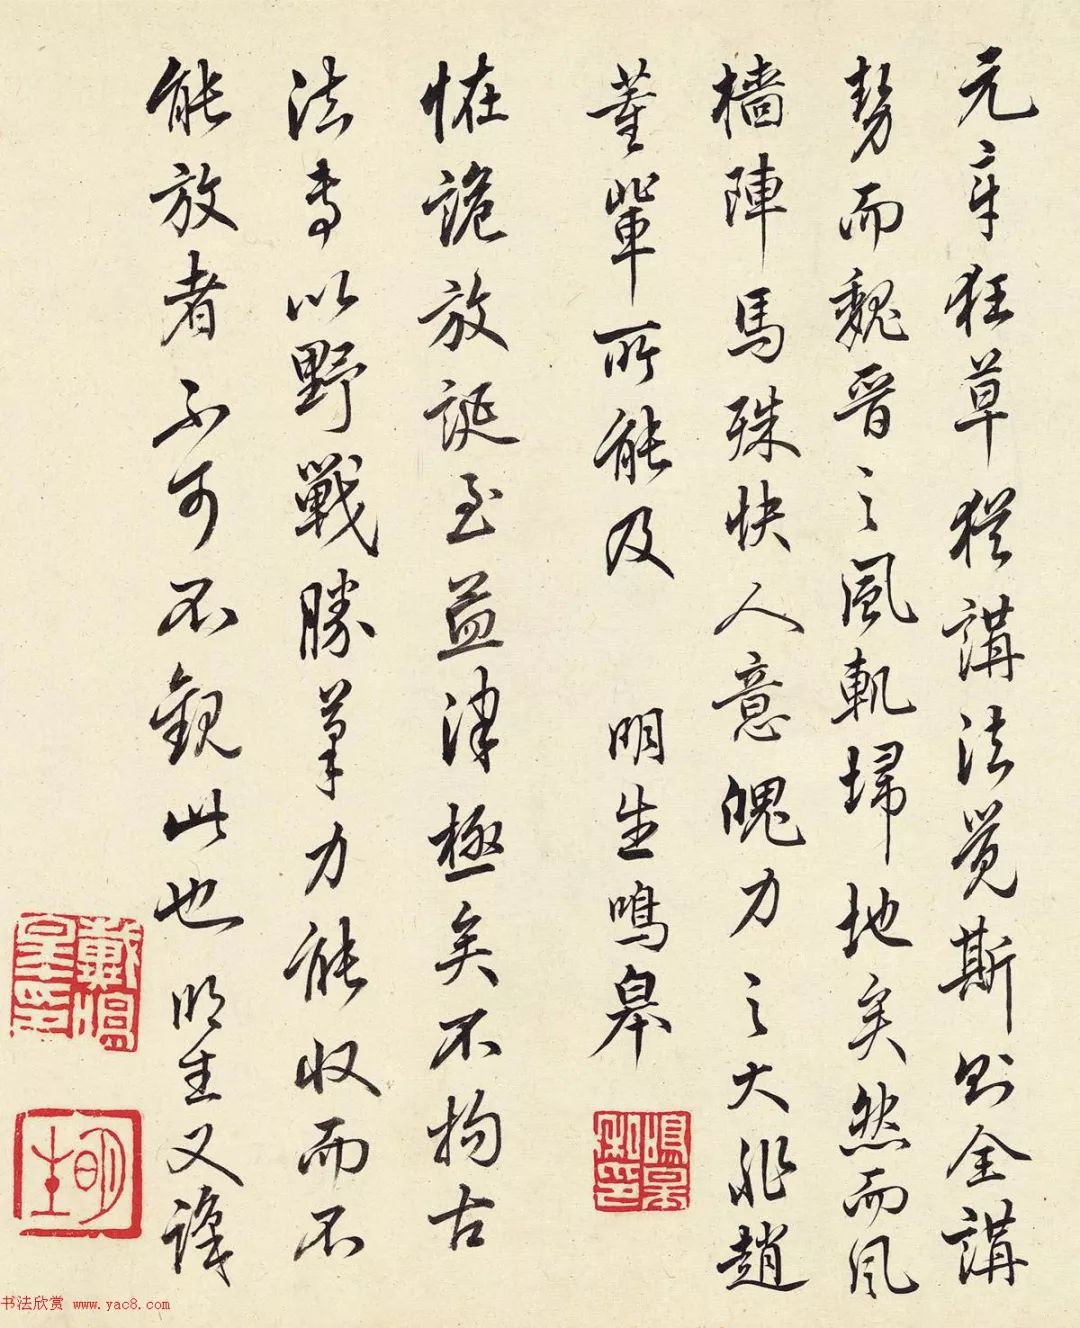 元章狂草猶講法覺斯則全講
勢而魏晉之風軌埽地矣然而風
檣陣馬殊快人意魄力之大非趙
董輩所能及　明生鳴皋
怪詭放誕至益津極矣不拘古
法專以野戰勝筆力能收而不
能放者不可不觀此也 明生又識
鳴皋私印
戴鳴皋印
明生
书法欣赏 www.yac8.com